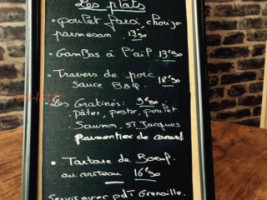 Les plats
• poulet farci chorizo
parmesan 13'50
• Gambas à l'ail 13'50
• Travers de porc
Sauce BBQ. 18'50
• Les Gratinés: 9'50
pâtes, pesto, poulet.
Saumon, St Jacques
Parmentier de canard
• Tartare de Boeuf.
au couteau 16'50
Servis avec pdt Grenaille.